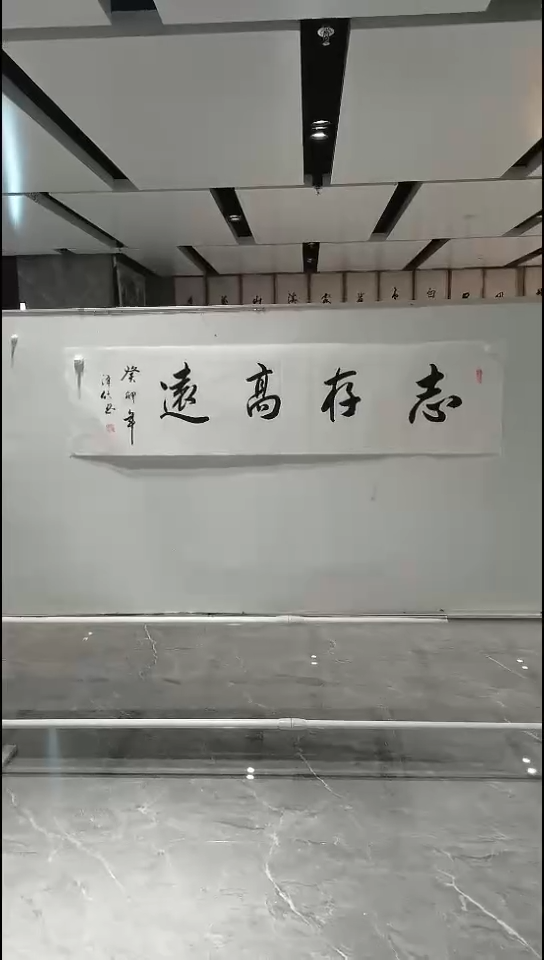 志存高遠
癸卯年